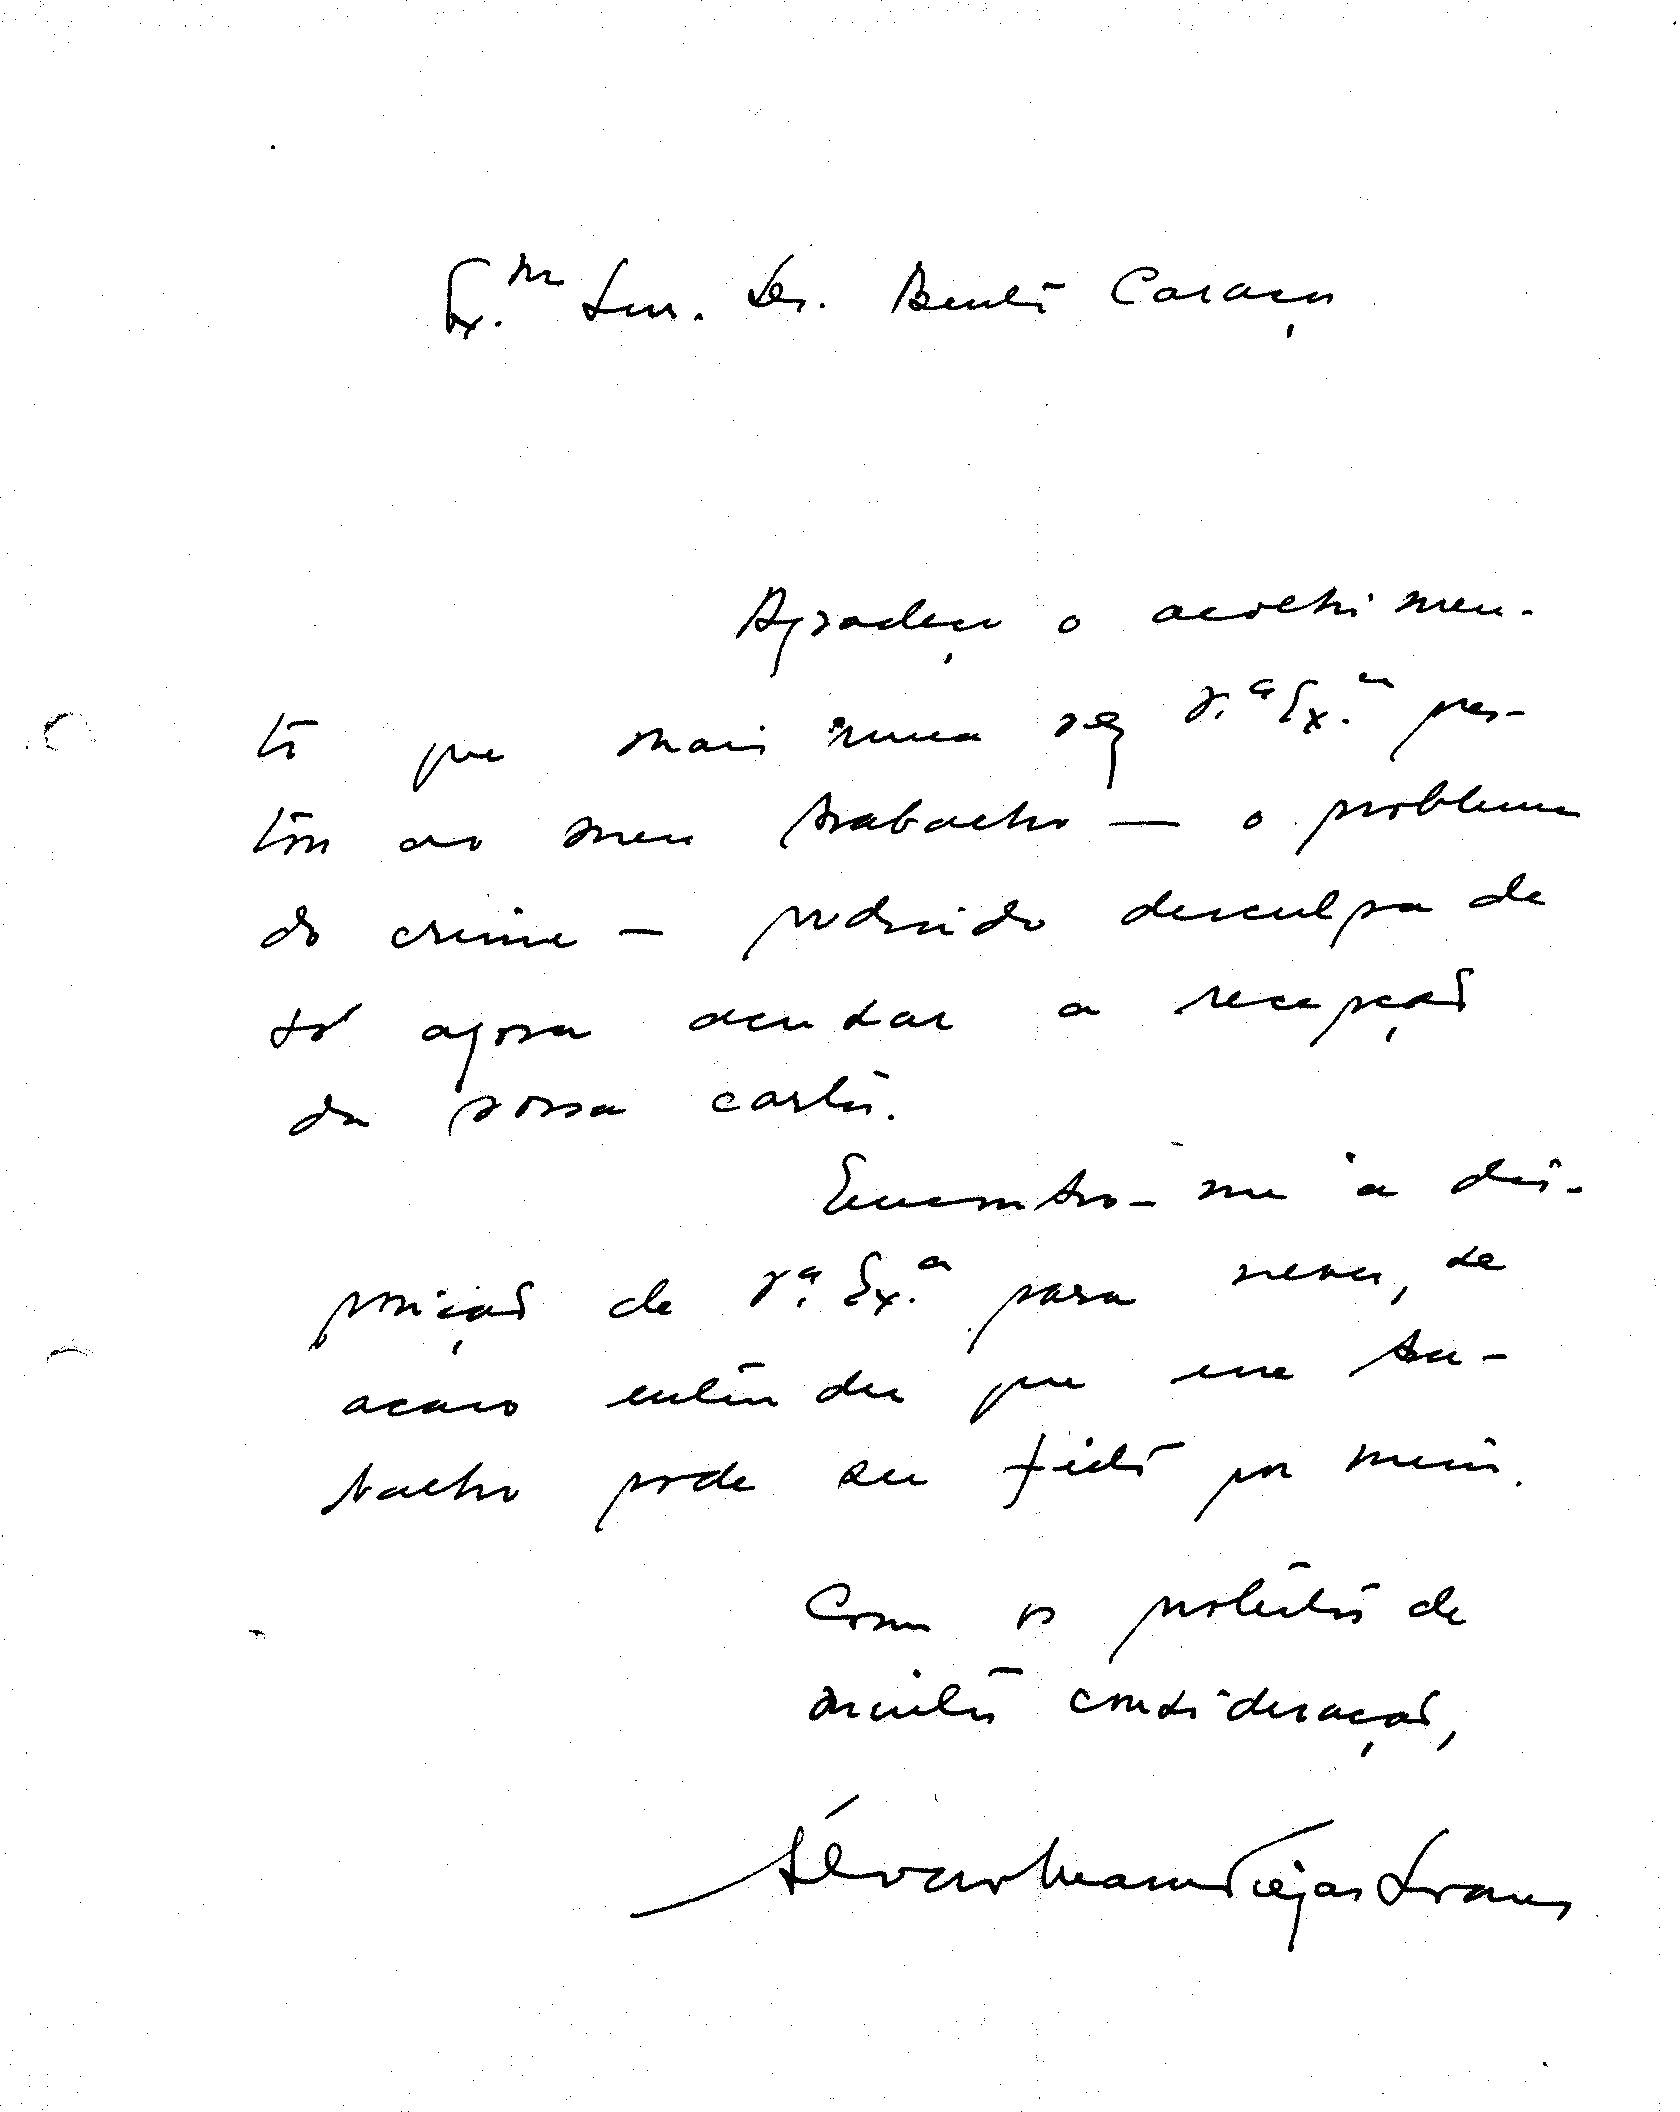 Ex.mo Snr. Dr. Bento Caraça
Agradeço o acolhimen-
to que mais uma vez V.ª Ex.ª pres-
tou ao meu trabalho — o problema
do crime — pedindo desculpa de
só agora acusar a recepção
da vossa carta.
Encontro-me à dis-
posição de V.ª Ex.ª para rever, se
acaso entender que esse tra-
balho pode ser feito por mim.
Com os protestos de
muita consideração,
Álvaro